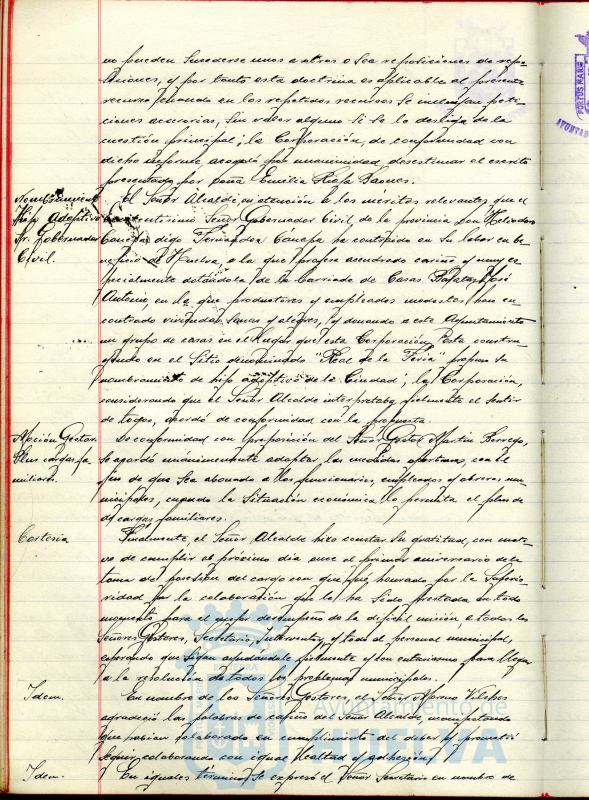 no pueden sucederse unos a otros o sea reposiciones de repo-
siciones, y por tanto esta doctrina es aplicable al presente
recurso cuando en los repetidos recursos se incluyan peti-
ciones accesorias, sin valor alguno si se lo desliga de la
cuestión principal; la Corporación, de conformidad con
dicho informe acordó por unanimidad, desestimar el escrito
presentado por Doña Emilia
Nombramiento
Hijo Adoptivo
Sr. Gobernador
Civil.
El Señor Alcalde, en atención a los meritos relevantes que el
Excelentísimo Señor Gobernador Civil de la provincia Don Meliodoro
Canepa digo Fernandez Canepa ha contraido en su labor en be-
neficio de Huelva, a la que profesa acendrado cariño y muy es-
pecialmente dotandola de la Barriada de Casas Baratas José
Antonio, en la que productores y empleados modestos han en-
contrado viviendas sanas y alegres, y donando a este Ayuntamiento
un grupo de casas en el lugar que esta Corporación está constru-
yendo en el Sitio denominado "Real de la Feria" propuso su
nombramiento de hijo adoptivo de la Ciudad; la Corporación,
considerando que el Señor Alcalde interpretaba fielmente el sentir
de todos, acordó de conformidad con la propuesta.
Moción Gestor.
Plus cargas fa-
miliares.
De conformidad con proposición del Señor Gestor Martín Berrego,
se acordó unánimemente adoptar las medidas oportunas, con el
fin de que sea abonado a los funcionarios, empleados y obreros mu-
nicipales, cuando la situación económica lo permita el plus de
cargas familiares.
Cortesia
Finalmente, el Señor Alcalde hizo constar su gratitud, con moti-
vo de cumplir el próximo dia once el primer aniversario de la
toma de posesión del cargo con que fué honrado por la Superio-
ridad por la colaboración que le ha sido prestada en todo
momento para el mejor desempeño de la dificil misión a todos los
Señores Gestores, Secretario, Interventor, y todo el personal municipal,
esperando que sigan ayudándole fielmente y con entusiasmo para llegar
a la resolución de todos los problemas municipales.
Idem.
En nombre de los Señores Gestores, el Señor Moreno Vilches
agradeció las palabras de cariño del Señor Alcalde, manifestando
que habian colaborado en cumplimiento del deber y prometió
seguir colaborando con igual lealtad y adhesión.
Idem.
En iguales términos se expresó el Señor Secretario en nombre de
Ayuntamiento de
HUELVA
PORTUS MARIS
AYUNTAM